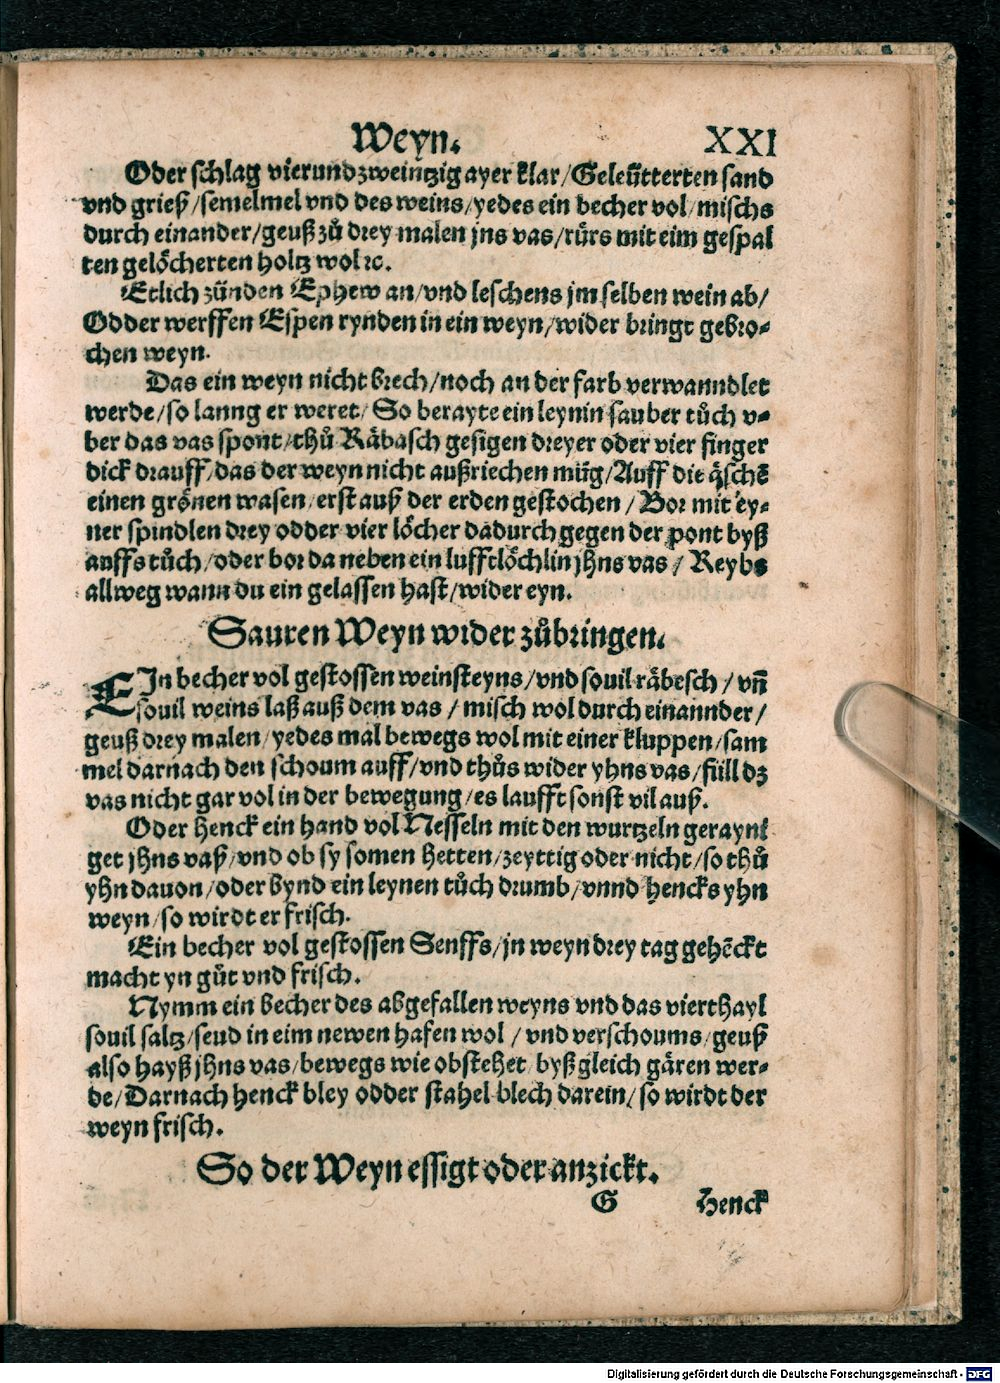 Weyn. XXI
Oder schlag vierundzweintzig ayer klar/Geleütterten sand
vnd grieß/semelmel vnd des weins/yedes ein becher vol/mischs
durch einander/geuß zů drey malen jns vas/rürs mit eim gespal
ten gelöcherten holtz wol ⁊c.
Etlich zünden Ephew an/vnd leschens jm selben wein ab/
Odder werffen Espen rynden in ein weyn/wider bringt gebro⸗
chen weyn.
Das ein weyn nicht brech/noch an der farb verwanndlet
werde/so lanng er weret/So berayte ein leynin sauber tůch v⸗
ber das vas spont/thů Räbasch gesigen dreyer oder vier finger
dick drauff/das der weyn nicht außriechen müg/Auff die äschē
einen grönen wasen/erst auß der erden gestochen/Bor mit ey⸗
ner spindlen drey odder vier löcher dadurch gegen der pont byß
auffs tůch/oder bor da neben ein lufftlöchlin jhns vas/Reybs
allweg wann du ein gelassen hast/wider eyn.
Sauren Weyn wider zůbringen.
EIn becher vol gestossen weinsteyns/vnd souil räbesch/vñ
souil weins laß auß dem vas/misch wol durch einannder/
geuß drey malen/yedes mal bewegs wol mit einer kluppen/sam
mel darnach den schoum auff/vnd thůs wider yhns vas/füll dz
vas nicht gar vol in der bewegung/es laufft sonst vil auß.
Oder henck ein hand vol Nesseln mit den wurtzeln gerayni
get jhns vaß/vnd ob sy somen hetten/zeyttig oder nicht/so thů
yhn dauon/oder bynd ein leynen tůch drumb/vnnd hencks yhn
weyn/so wirdt er frisch.
Ein becher vol gestossen Senffs/jn weyn drey tag gehēckt
macht yn gůt vnd frisch.
Nymm ein becher des abgefallen weyns vnd das vierthayl
souil saltz/seud in eim newen hafen wol/vnd verschoums/geuß
also hayß jhns vas/bewegs wie obstehet/byß gleich gären wer⸗
de/Darnach henck bley odder stahel blech darein/so wirdt der
weyn frisch.
So der Weyn essigt oder anzickt.
G Henck
Digitalisierung gefördert durch die Deutsche Forschungsgemeinschaft - DFG